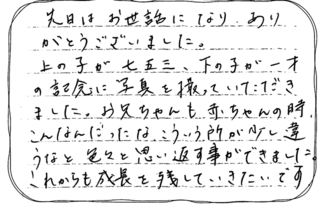 先日はお世話になり、あり
がとうございました。
上の子が七五三、下の子が一才
の記念に写真を撮っていただき
ました。お兄ちゃんも赤ちゃんの時、
こんなんだったな、こういう所が少し違
うなと色々と思い返す事ができました。
これからも成長を残していきたいです